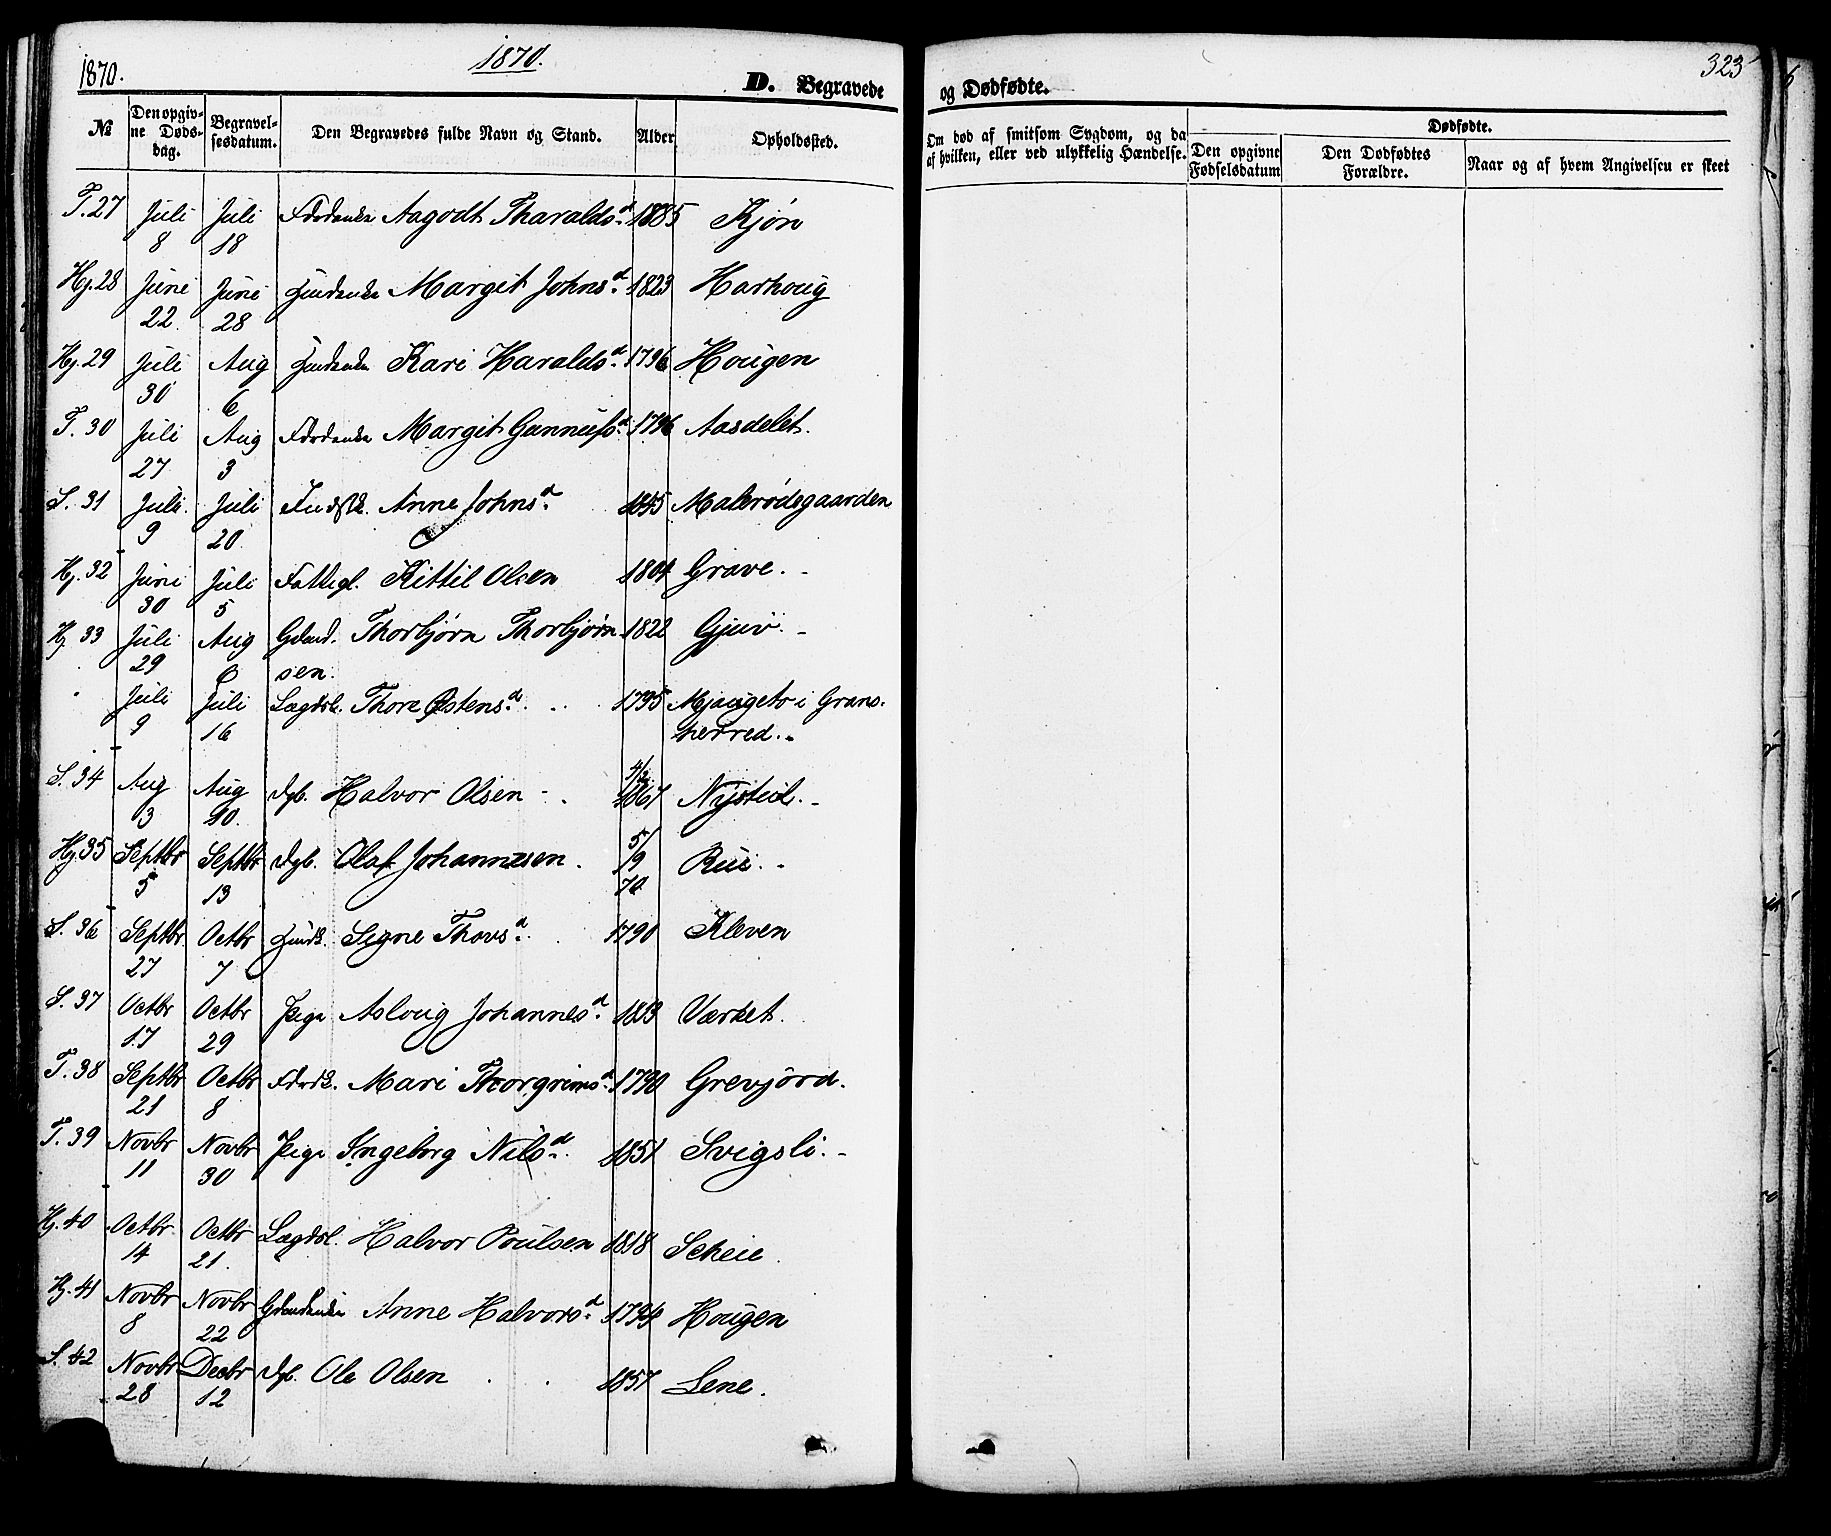 1870.
1870.
D. Begravede
№
Den opgivne Dødsdag.
Begravelsesdatum.
Den Begravedes fulde Navn og Stand.
Alder
Opholdssted.
T. 27 Juli 8 Juli 18 Aagodt Tharaldsd. Kjøn
Hj. 28 Juni 22 Juni 28 Margit Johnsd. 1823 Harhoug
Hj. 29 Juli 30 Aug 6 Kari Haraldsd. 1796 Hougen
T. 30 Juli 27 Aug 3 Margit Gunnufsd. 1796 Aasdelet.
S. 31 Juli 9 Juli 20 Anne Johnsd. Malerødegaarden
Hj. 32 Juni 30 Juli 5 Fattigl. Kittil Olsen 1804 Grave.
Hj. 33 Juli 29 Aug 6 Gdmd. Thorbjørn Thorbjørn- 1822 Gjuv.
sen.
Juli 9 Juli 16 Lægdsl. Thore Østensd. 1795 Mjaugeto i Grans-
herred.
S. 34 Aug 3 Aug 10 Dgb. Halvor Olsen 1867 Nysteil.
Hj. 35 Septbr 5 Septbr 13 Dgb. Olaf Johannesen. 5/9 70 Rui.
S. 36 Septbr 27 Octbr 7 Signe Thovsd. 1790 Kleven
S. 37 Octbr 17 Octbr 29 Pige Asloug Johannesd. Værket.
T. 38 Septbr 21 Octbr 8 Mari Thorgrimsd. 1790 Grevjord.
T. 39 Novbr 11 Novbr 30 Pige Ingeborg Nilsd. 1851 Svigsli.
Hj. 40 Octbr 14 Octbr 21. Lægdsl. Halvor Poulsen 1818 Scheie
Hj. 41 Novbr 8 Novbr 22 Anne Halvorsd. Hougen
S. 42 Novbr 28 Decbr 12 Dgb. Ole Olsen 1857 Lene.
323
og Dødfødte.
Om død af smitsom Sygdom, og da
af hvilken, eller ved ulykkelig Hændelse.
Dødfødte.
Den opgivne
Fødselsdatum
Den Dødfødtes
Forældre.
Naar og af hvem Angivelsen er skeet